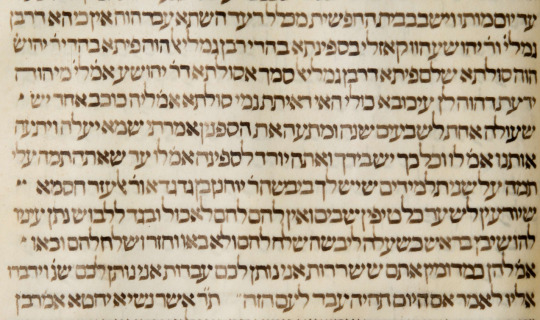 עד יום מותו וישב בבית החפשית מכלל דעד השתא עבד הוה אין כי הא דרבן
גמלי' ור' יהושע הוו קאזלי בספינתא בהדי רבן גמליא' הוה פיתא בהדי ר' יהוש'
הוה סולתא שלם פיתא דרבן גמליא' סמך אסולתא דר' יהושע אמ'לי' מי הוה
ידעת דהוה לן עיכובא כולי האי דאיתת נמי סולתא אמ'ליה כוכב אחד יש
שעולה אחת לשבעים שנה ומתעה את הספנין אמרתי שמא יעלה ויתעה
אותנו אמ'לו וכל כך יש בידך ואתה יורד לספינה אמ'לו עד שאתה תמה עלי
תמה על שני תלמידים שיש לך ביבשה ר' יוחנן בן גדגדא ור' אלעזר חסמא
שיודעין לשער כל טיפין שבים ואין להם לחם לאכול ובגד ללבוש נתן עיניו
להושיבן בראש כשעלה ליבשה שלח להם ולא באו וחזר ושלח להם ובאו
אמ' להן כמדומין אתם ששררות אני נותן לכם עבדות אני נותן לכם שנ' וידברו
אליו לאמר אם היום תהיה עבד לעם הזה ת'ר' אשר נשיא יחטא אמ' רבן